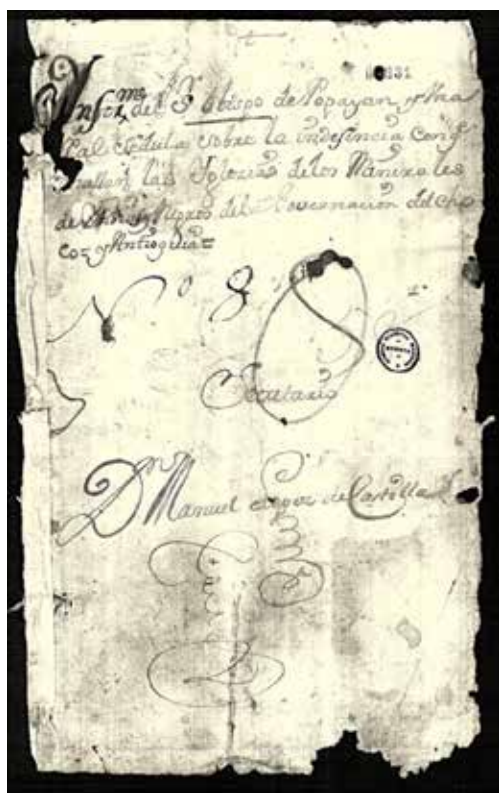 00131
Ynfor.me del S.r Obispo de Popayan, y una
Real Cedula sobre la indesincia con q.e
se hallan las Yglecias de los Minerales
de Negros del Governacion del Cho
co, y Antioquia=
N.o 8
Secretario
D.n Manuel de Castilla